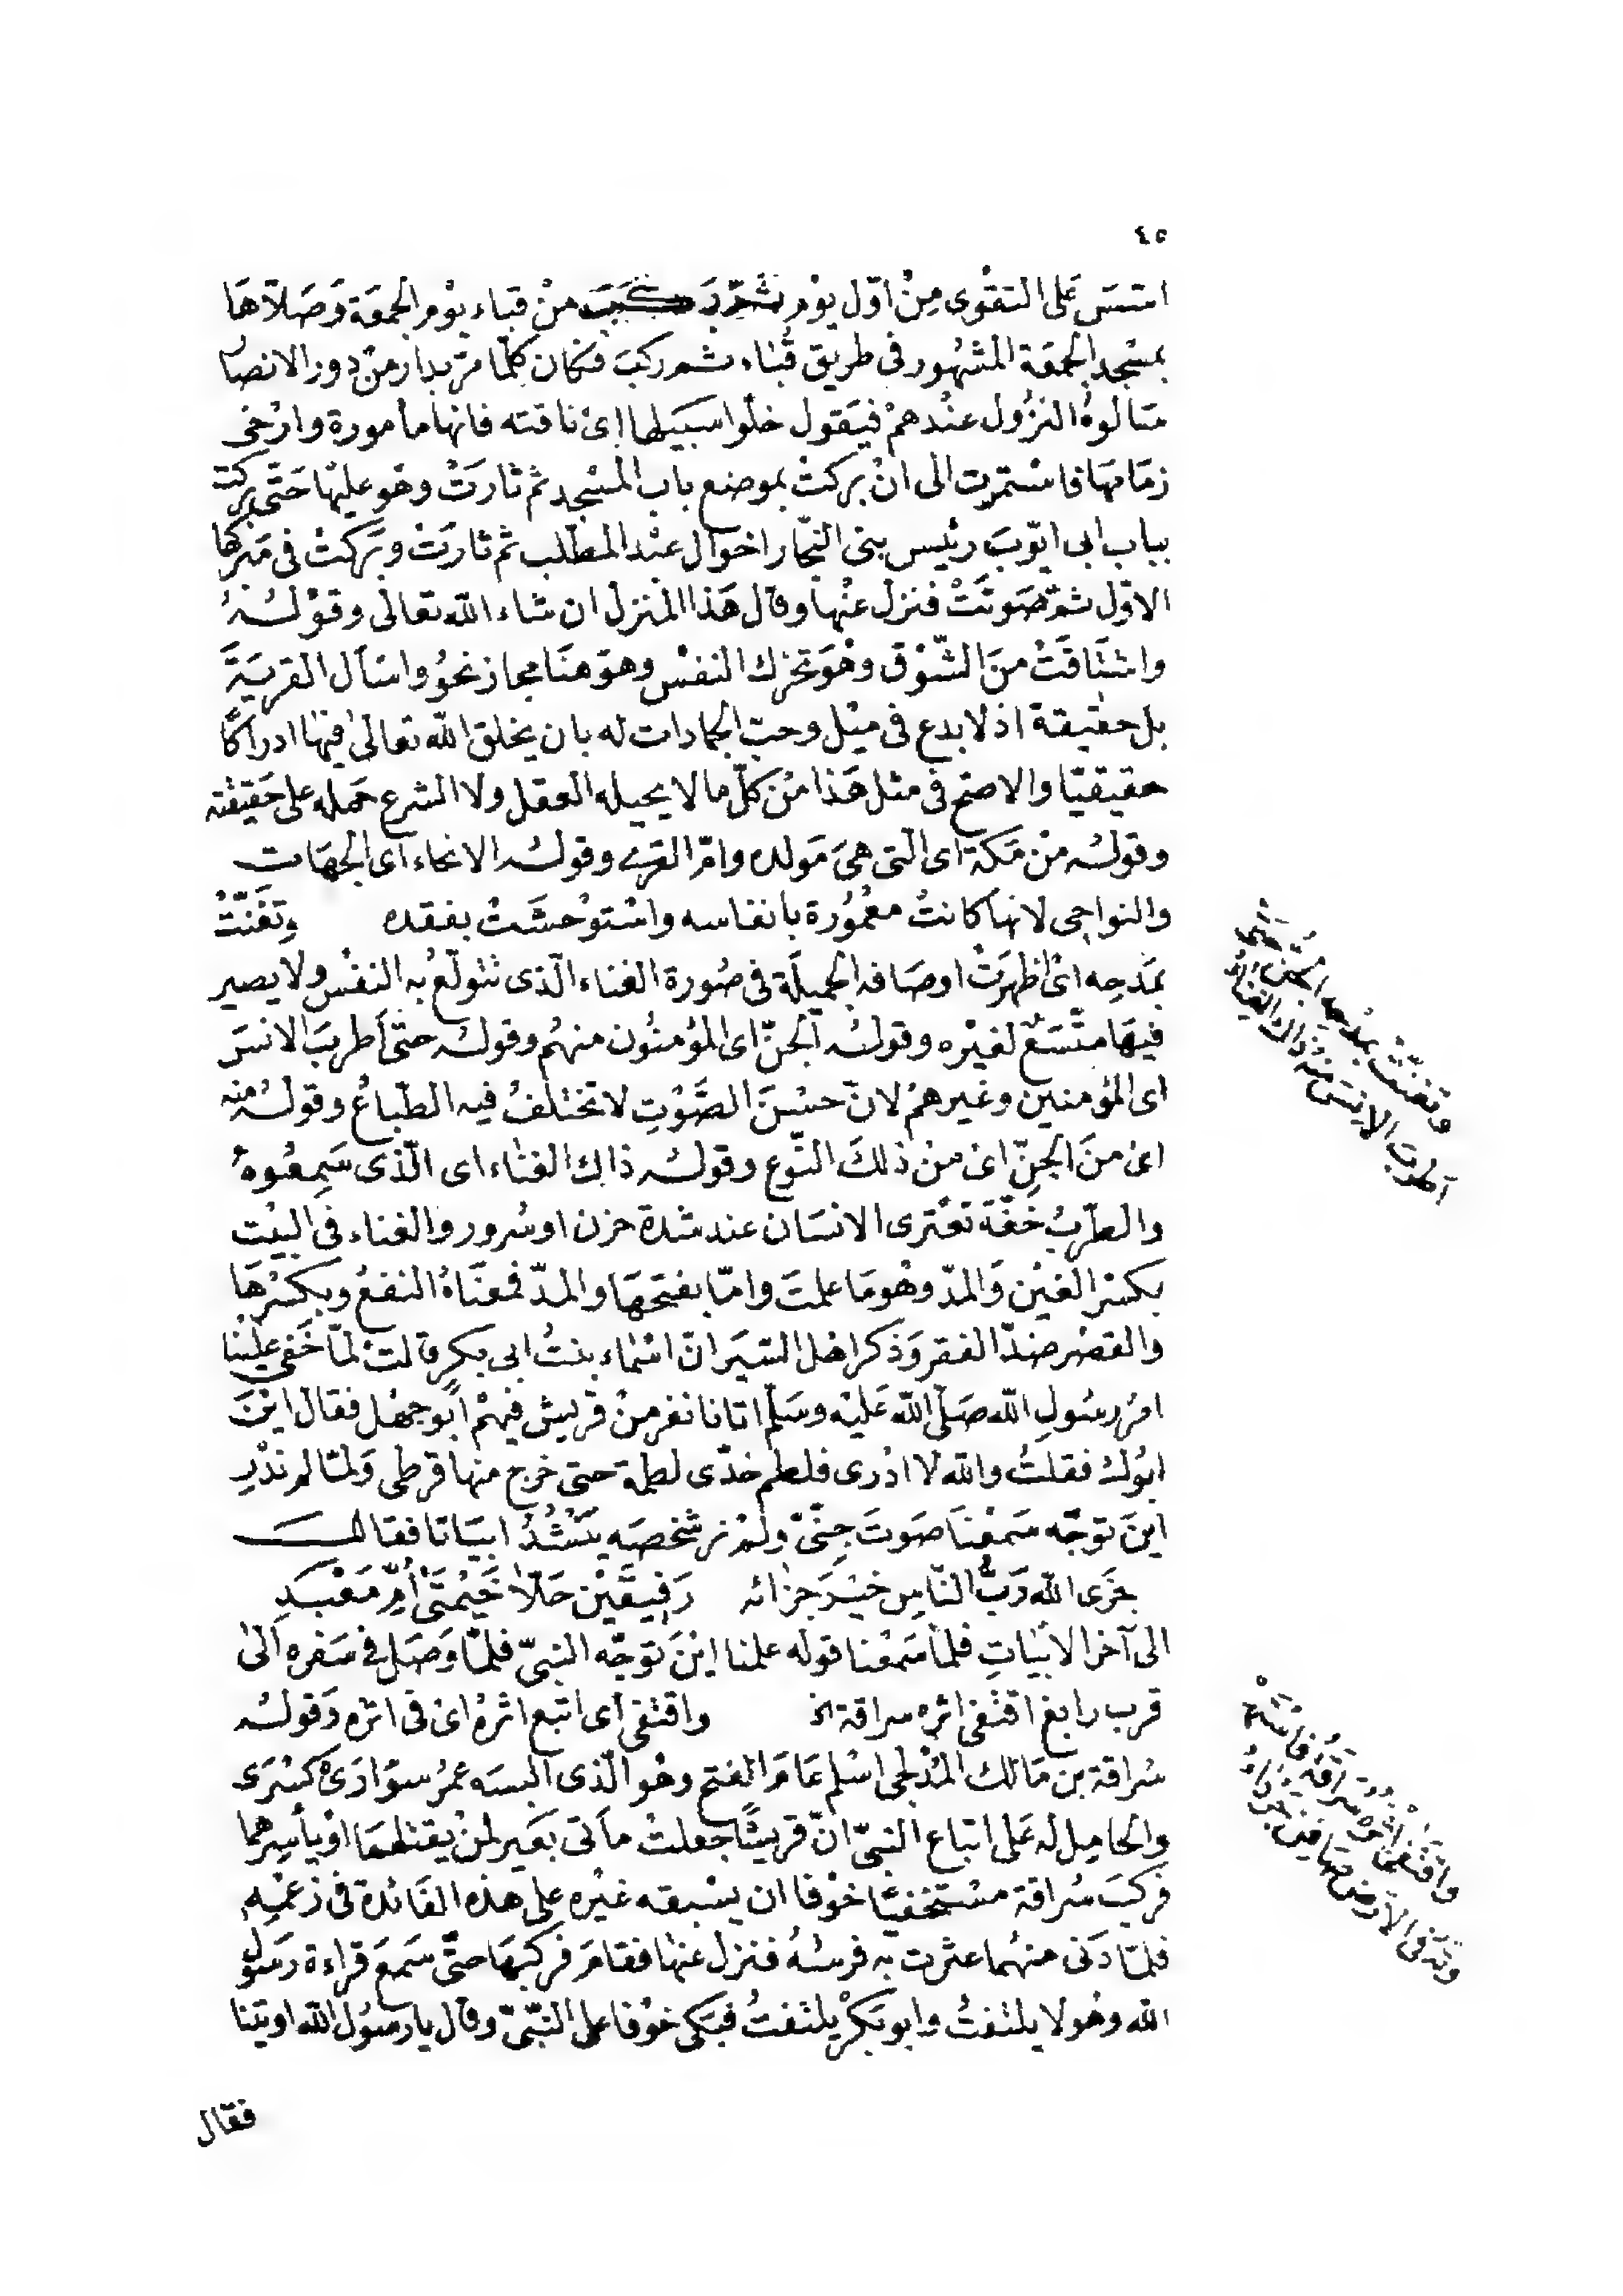 ٤٥
اسّسَ عَلى التقْوى مِنْ اوّل يوْم ثمّ ركبَ منْ قباء يوْم الجمعَة وَصَلاّهَا
بمسْجد الجمعَة المشهُور فى طريق قُبَاء ثم ركبَ فكان كلّما مرّ بدار منْ دور الانصار
سَالوهُ النزُول عنْدهمْ فيَقول خلّوا سبيَلها اىْ ناقته فانها مأمورة وارْخى
زمَامَهَا فاسْتمرت الى انْ بركتْ بموضع باب المسْجد ثم ثارَتْ وهو عليْها حَتّى بركت
بباب ابى ايّوبَ رئيس بنى النجّار اخوال عبْد المطّلب ثم ثارَتْ وبَركتْ فى مَبركها
الاوّل ثمّ صَوتَتْ فنزل عنْها وقال هَذا المنزل ان شاء الله تعالى وقوْلُهُ
واشتَاقَتْ منَ الشّوْق وهْوَ تحرّك النفسْ وهوَ هنَا مجاز نحوُ واسْأل القريَةَ
بل حقيقة اذ لا بدع فى ميْل وحبّ الجمادات له بان يخلق الله تعالى فيهَا ادراكًا
حقيقيّا والاصحّ فى مثل هَذا منْ كلّ ما لا يحيله العقل ولا الشرع حمله على حَقيقته
وقولُه منْ مَكة اى التى هىَ مَولده وامّ القرى وقولُه الانحاء اى الجهَات
والنواحى لانها كانتْ معْمُورة بانفاسه واسْتوْحشَتْ بفقده وتَغَنّتْ
بمَدحِه اىْ اظهرَتْ اوصَافه الجميلَة فى صُورة الغناء الّذى تتولّعُ به النفسْ ولا يصير
فيهَا متّسَعٌ لغيْره وقولُه الجنّ اى المؤمنُون منهُم وقوله حتّى أطربَ الانسَ
اى المؤمنين وغيرهمْ لانّ حسْنَ الصَّوْتِ لا تختلفُ فيه الطّباعُ وقولُه منه
اىْ منَ الجنِّ اىْ منْ ذلكَ النّوع وقولُه ذاك الغنَاء اى الّذى سَمِعُوهُ
والطّربُ خفّة تعْترى الانسَان عند شدة حزن اوسُرور والغناء فى البيْت
بكسْر الغيْن وَالمدّ وهْو مَا علمتَ وامّا بفتحهَا والمدّ فمعْنَاهُ النفعُ وبكسْرهَا
والقصْر ضدّ الفقر وَذكر اهْل السّيَر انّ اسْمَاء بنتُ ابى بكر قالتْ لمّا خَفى عليْنَا
امرُ رسُولِ الله صَلّى الله عَليْه وسَلّم اتانا نفر منْ قريش فيهمْ ابُو جهْل فقال ايْنَ
ابوُك فقلتُ والله لا ادْرى فلطم خدّى لطمة حتى خرج منها قرطى وَلمّا لم ندْرِ
اينَ توجّه سَمعْنَا صَوتَ جِنّىّ ولمْ نر شخصَه يُنْشُدُ ابيَاتا فقالَ
جزَى الله رَبُّ النّاس خيْرَ جزائه رَفيقَيْن حَلاّ خَيْمتَىْ أُمِّ مَعْبَدِ
الى آخر الابْيَاتِ فلمّا سَمعْنا قوله علمنا ايْنَ توجّه النبىّ فلمّا وَصَل فى سَفره الى
قرب رابغ اقتفى اثره سراقة الخ واقتفى اى اتبع اثرهُ اىْ فى اثره وَقولُه
سُراقة بن مَالك المدْلجى اسْلم عَامَ الفتح وهْو الّذى البسَه عمُر سوَارَىْ كسْرَى
والحامِل له عَلى اتباع النبىّ انّ قريشًا جعلتْ مأتى بعَير لمنْ يقتلهمَا اوْ يأسرهما
فركبَ سُراقة مسْتخفيًا خوْفا ان يسْبقه غيْره على هذه الفائدة فى زعْمِه
فلمّا دَنى منهُما عثرت به فرسُهُ فنزل عنها فقامَ فركبهَا حتّى سَمعَ قراءة رسُول
الله وهُو لا يلتفتُ وابو بَكرْ يلتفتُ فبَكى خوْفا على النّبىّ وقال يا رسُول الله اوتينا
فقال
وتغنّتْ بمدْحِه الجنُّ حتّى
أطربَ الانسَ منهُ ذاك الغنَاءُ
واقتفى اثرَه سُرَاقَةُ فاسْتَهْـ
وَتْه فى الأرْضِ صَافِنٌ جَرْدَاءُ